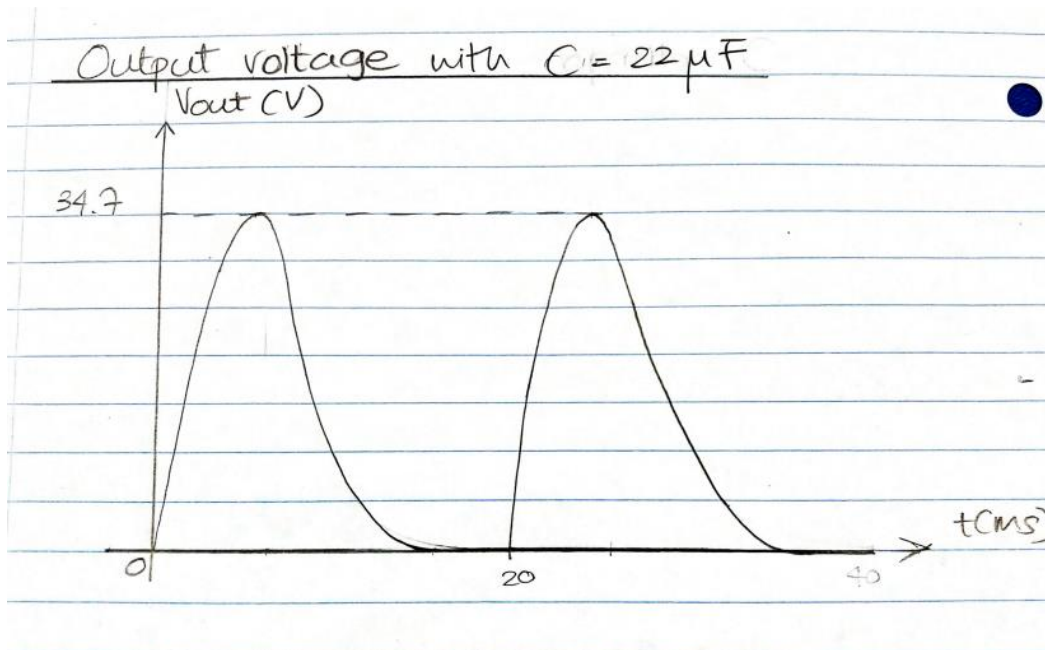 Output voltage with C = 22 μF
Vout (V)
34.7
t(ms)
0
20
40